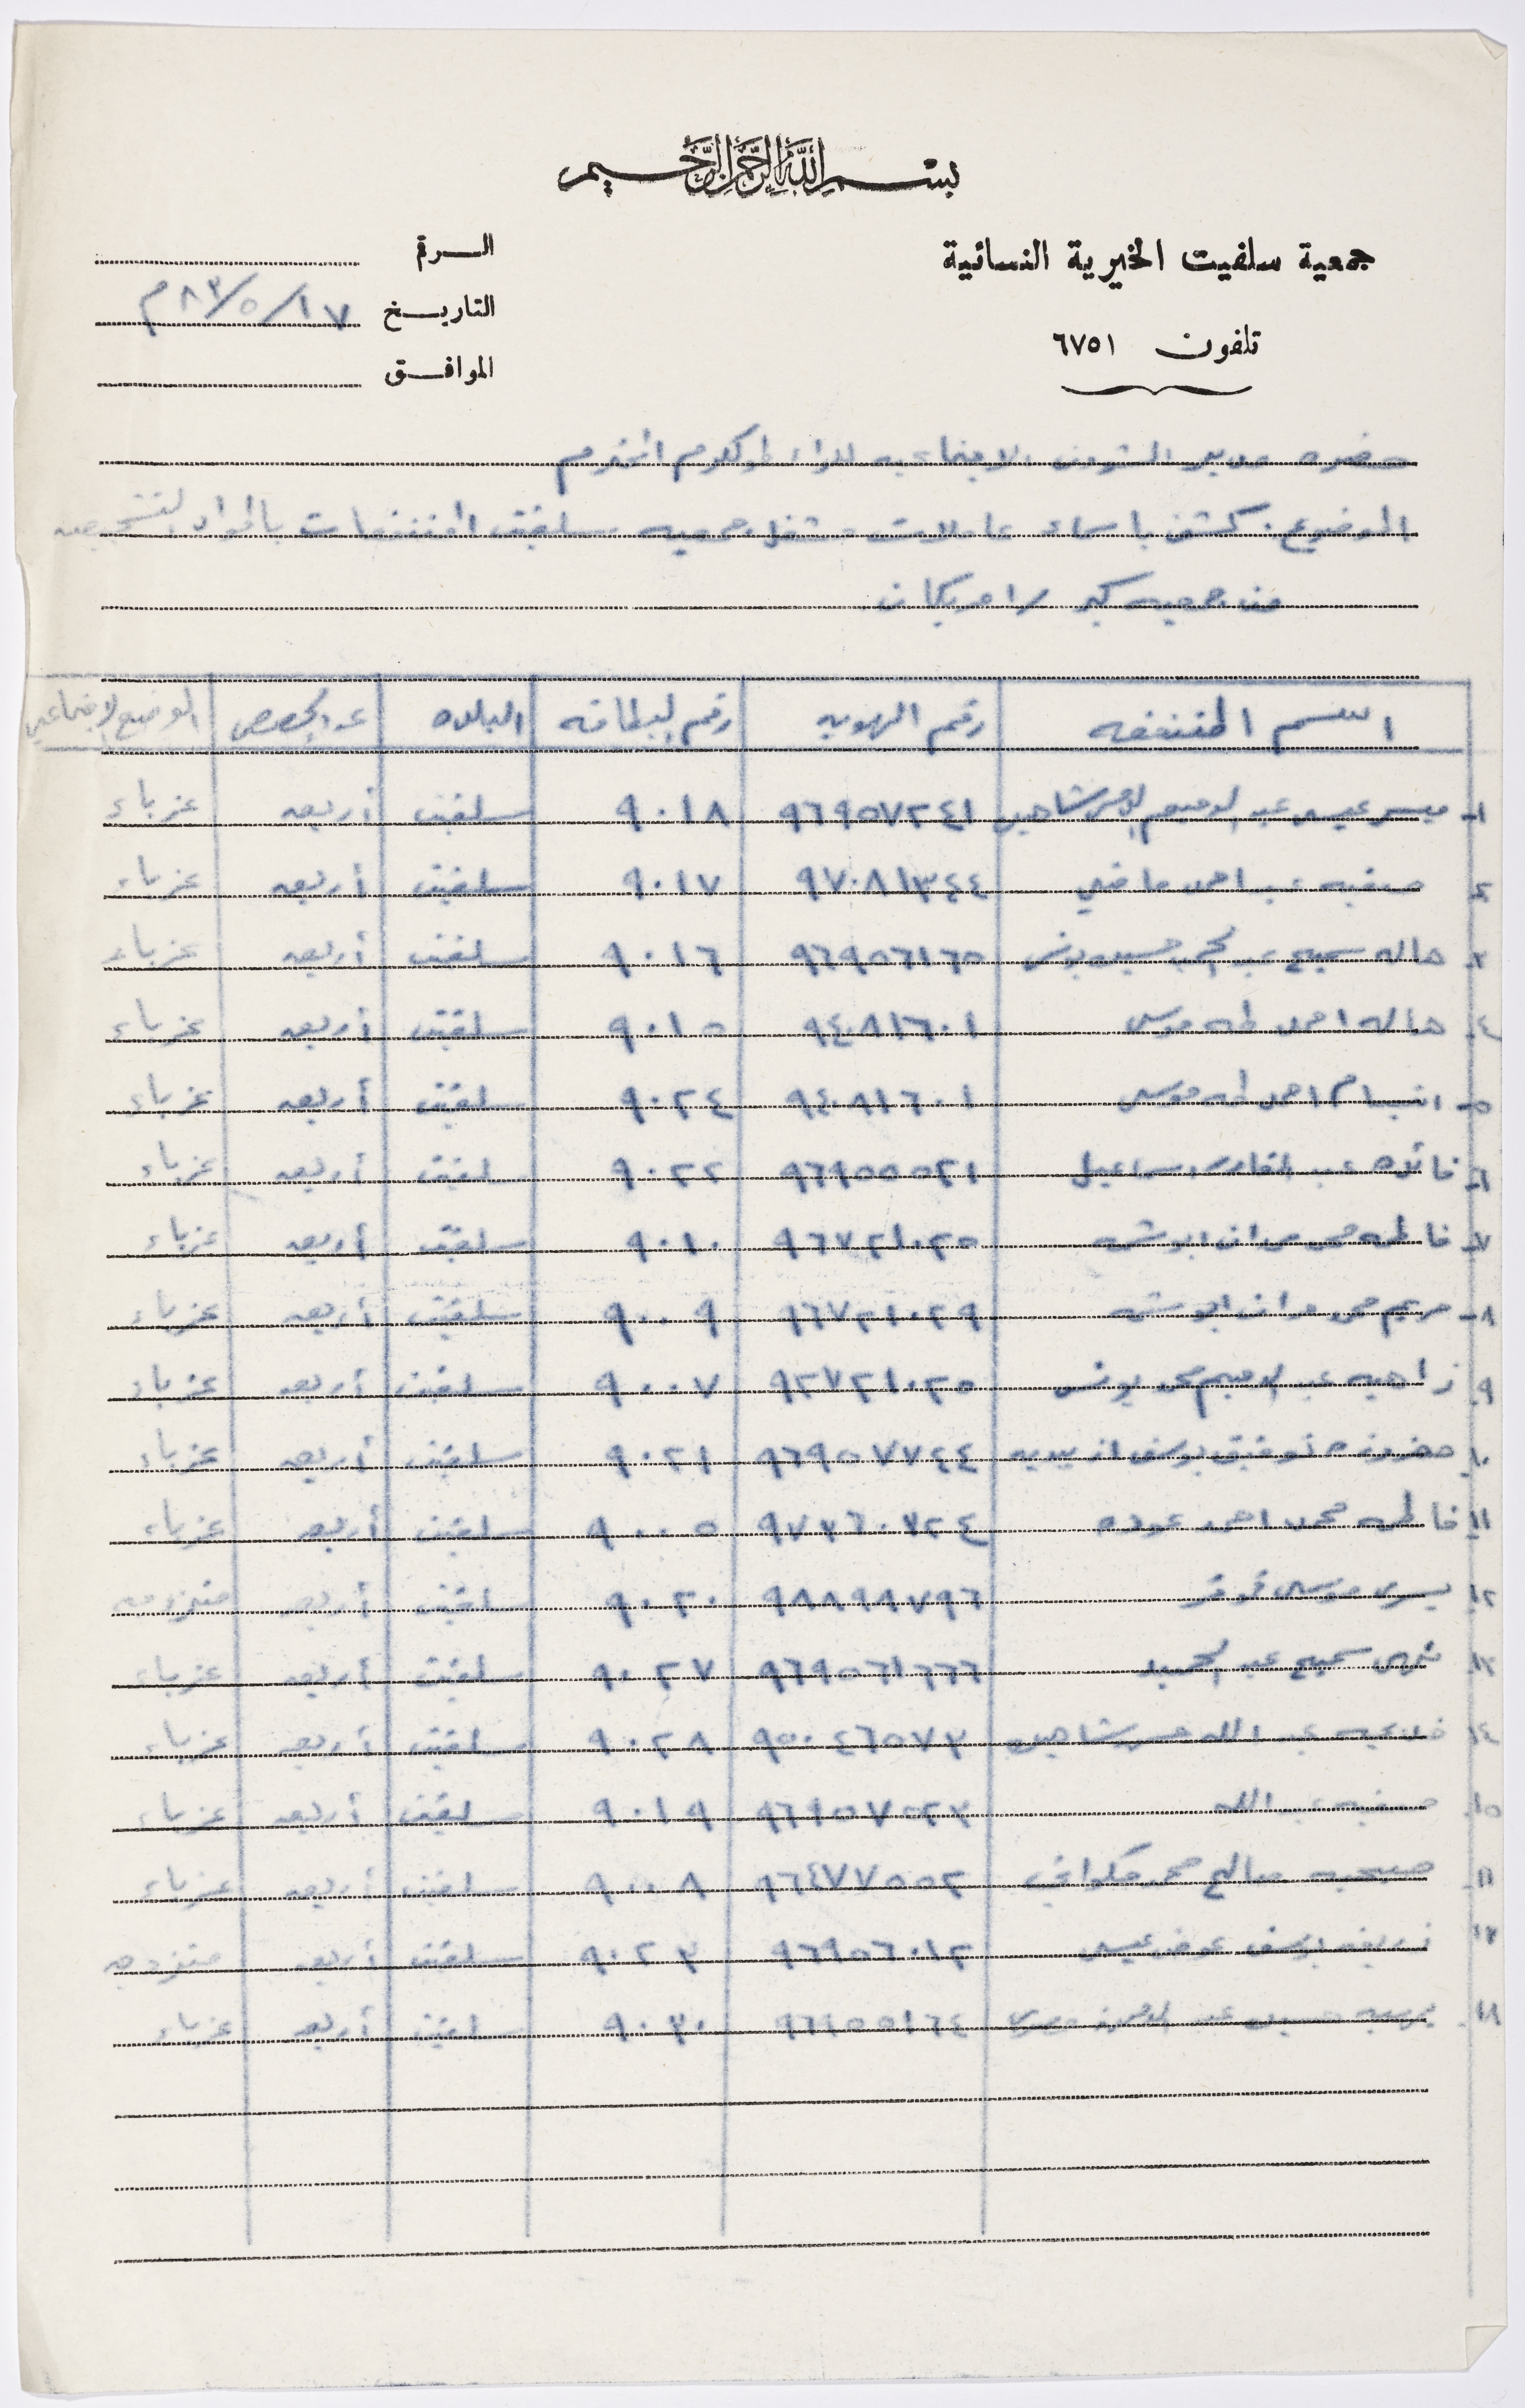 بسم الله الرحمن الرحيم
جمعية سلفيت الخيرية النسائية
تلفون ٦٧٥١
الرقم
التاريخ ١٧/٥/٨٣م
الموافق
حضرة مدير الشؤون الاجتماعيه للواء طولكرم المحترم
الموضوع: كشف باسماء عاملات مشغل جمعيه سلفيت المنتفعات بالمواد التشجيعيه
من جمعيه كير / امريكان
اسم المنتفعه رقم الهويه رقم البطاقه البلده عدد الحصص الوضع الاجتماعي
١- عبد الرحيم شاهين ٩٦٩٥٧٢٤١ ٩٠١٨ سلفيت أربعه عزباء
٢- صفيه عبد احمد ماضي ٩٧٠٨١٣٤٤ ٩٠١٧ سلفيت أربعه عزباء
٣- هاله سميح عبد حسين يونس ٩٦٩٥٦١٦٥ ٩٠١٦ سلفيت أربعه عزباء
٤- هاله احمد طه موسى ٩٤٠٨١٦٠١ ٩٠١٥ سلفيت أربعه عزباء
٥- ابتسام احمد طه موسى ٩٤٠٨١٦٠١ ٩٠٢٤ سلفيت أربعه عزباء
٦- فائده عبد القادر اسماعيل ٩٦٩٥٥٥٢١ ٩٠٢٢ سلفيت أربعه عزباء
٧- فاطمه محمد ابو شمه ٩٦٧٢١٠٢٥ ٩٠١٠ سلفيت أربعه عزباء
٨- مريم محمد ابو شمه ٩٦٧٢١٠٢٩ ٩٠٠٩ سلفيت أربعه عزباء
٩- زاهيه عبد الرحيم محمد يونس ٩٢٧٢١٠٢٥ ٩٠٠٧ سلفيت أربعه عزباء
١٠- توفيق يوسف ٩٦٩٥٧٧٢٤ ٩٠٢١ سلفيت أربعه عزباء
١١- فاطمه محمد احمد عوده ٩٧٣٦٠٧٢٤ ٩٠٠٥ سلفيت أربعه عزباء
١٢- يسرى موسى ٩٨٨٩٨٧٩٦ ٩٠٢٠ سلفيت أربعه متزوجه
١٣- سميح عبد الحميد ٩٦٩٥٦١٦٦ ٩٠٢٧ سلفيت أربعه عزباء
١٤- عبد الله حسن شاهين ٩٥٠٤٦٥٧٣ ٩٠٢٨ سلفيت أربعه عزباء
١٥- صفيه عبد الله ٩٦٩٥٧٥٢٣ ٩٠١٩ سلفيت أربعه عزباء
١٦- صبحيه صالح محمد ٩٦٤٧٧٥٥٢ ٩٠٠٨ سلفيت أربعه عزباء
١٧- يوسف عوض عيسى ٩٦٩٥٦٠١٢ ٩٠٢٣ سلفيت أربعه متزوجه
١٨- حسين عبد الرحمن ٩٦٩٥٥١٦٤ ٩٠٣٠ سلفيت أربعه عزباء